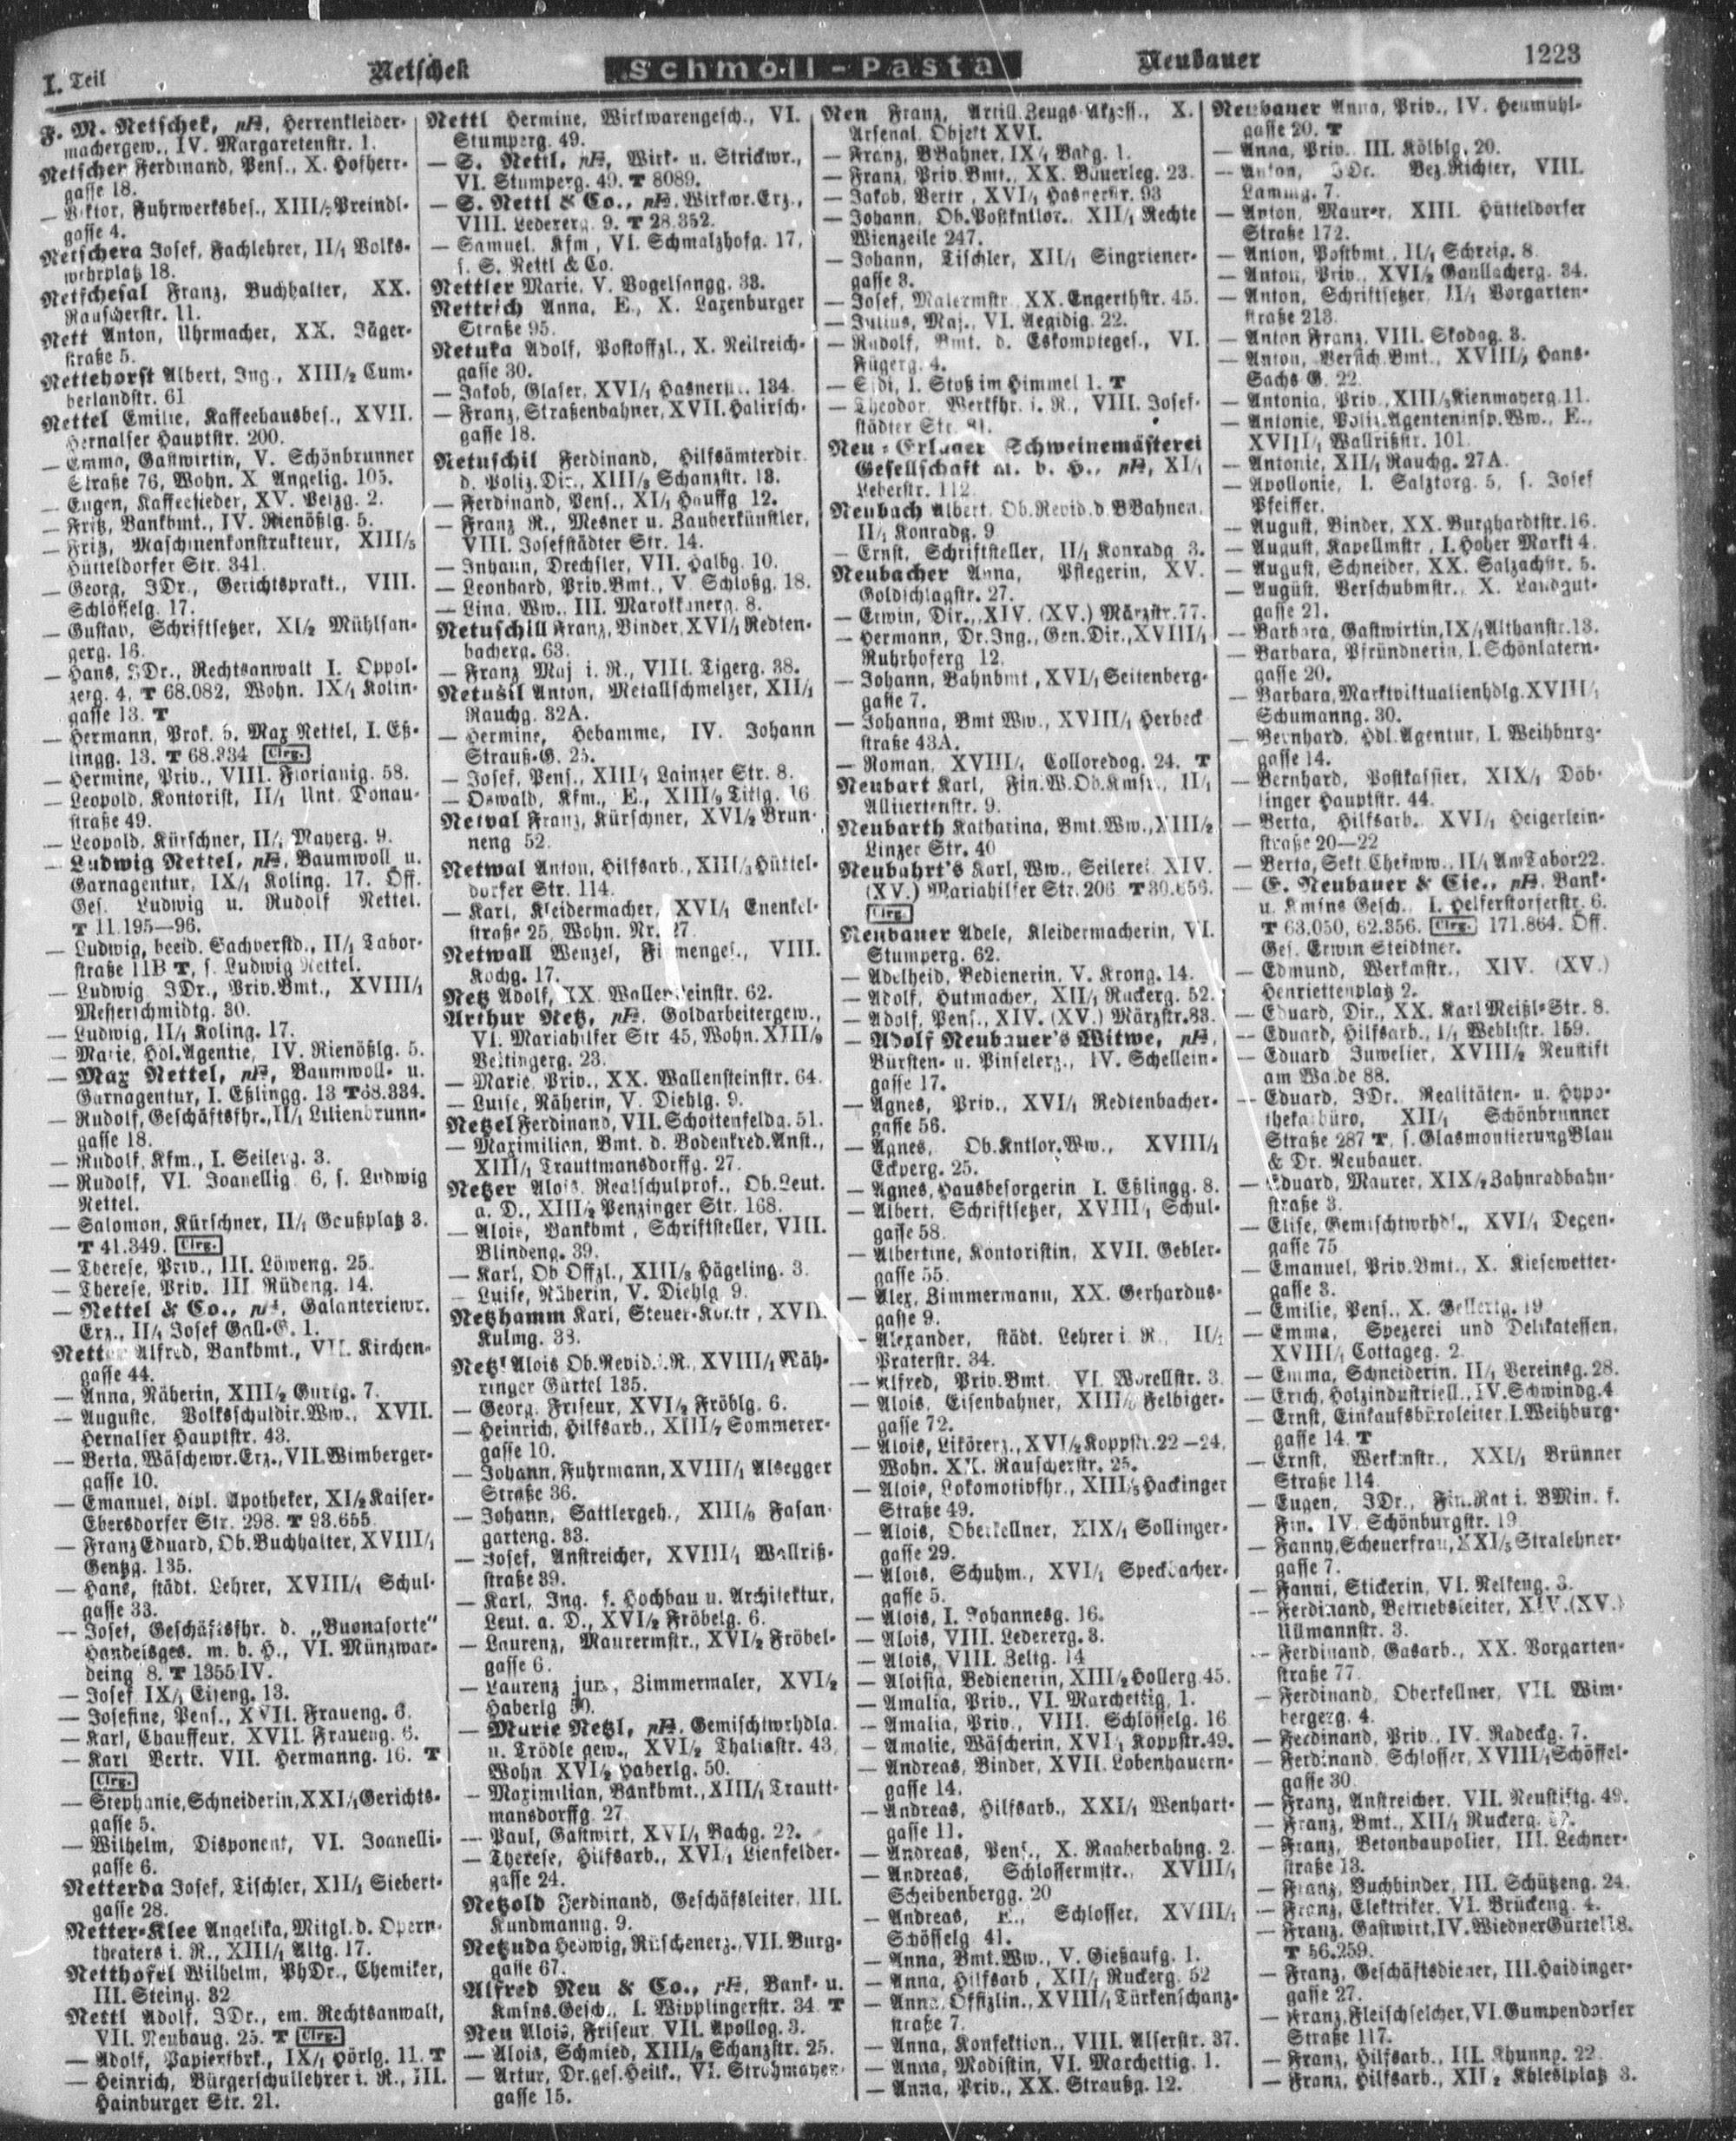 I. Teil
Netschek
Schmoll-Pasta
Neubauer
1223
F. M. Netschek, Herrenkleider-
machergew., IV. Margaretenstr. 1.
Netscher Ferdinand, Pens., X. Hofherr-
gasse 18.
— Viktor, Fuhrwerksbes., XIII/5 Preindl-
gasse 4.
Netschera Josef, Fachlehrer, II/1 Volks-
wehrplatz 18.
Netschesal Franz, Buchhalter, XX.
Rauscherstr. 11.
Nett Anton, Uhrmacher, XX. Jäger-
straße 5.
Nettehorst Albert, Ing., XIII/2 Cum-
berlandstr. 61
Nettel Emilie, Kaffeehausbes., XVII.
Hernalser Hauptstr. 200.
— Emma, Gastwirtin, V. Schönbrunner
Straße 76, Wohn. X Angelig. 105.
— Eugen, Kaffeesieder, XV. Pelzg. 2.
— Fritz, Bankbmt., IV. Rienößlg. 5.
— Fritz, Maschinenkonstrukteur, XIII/5
Hütteldorfer Str. 341.
— Georg, JDr., Gerichtsprakt., VIII.
Schlösselg. 17.
— Gustav, Schriftsetzer, XI/2 Mühlsan-
gerg. 16.
— Hans, JDr., Rechtsanwalt I. Oppol-
zerg. 4, T 68.082, Wohn. IX/1 Kolin-
gasse 13. T
— Hermann, Prok. b. Max Nettel, I. Eß-
lingg. 13. T 68.334 Clrg.
— Hermine, Priv., VIII. Florianig. 58.
— Leopold, Kontorist, II/1 Unt. Donau-
straße 49.
— Leopold, Kürschner, II/1 Mayerg. 9.
— Ludwig Nettel, Baumwoll u.
Garnagentur, IX/1 Koling. 17. Öff.
Ges. Ludwig u. Rudolf Nettel.
T 11.195—96.
— Ludwig, beeid. Sachverstd., II/1 Tabor-
straße 11B T, s. Ludwig Nettel.
— Ludwig JDr., Priv.Bmt., XVIII/1
Messerschmidtg. 30.
— Ludwig, II/1 Koling. 17.
— Marie, Hdl.Agentie, IV. Rienößlg. 5.
— Max Nettel, Baumwoll- u.
Garnagentur, I. Eßlingg. 13 T 68.334.
— Rudolf, Geschäftsfhr., II/1 Lilienbrunn-
gasse 18.
— Rudolf, Kfm., I. Seilerg. 3.
— Rudolf, VI. Joanellig. 6, s. Ludwig
Nettel.
— Salomon, Kürschner, II/1 Gaußplatz 3.
T 41.349. Clrg.
— Therese, Priv., III. Löweng. 25.
— Therese, Priv. III. Rüdeng. 14.
— Nettel & Co., Galanteriewr.
Erz., II/1 Josef Gall-G. 1.
Netter Alfred, Bankbmt., VII. Kirchen-
gasse 44.
— Anna, Näherin, XIII/2 Gurtg. 7.
— Auguste, Volksschuldir.Ww., XVII.
Hernalser Hauptstr. 43.
— Berta, Wäschewr.Erz., VII. Wimberger-
gasse 10.
— Emanuel, dipl. Apotheker, XI/2 Kaiser-
Ebersdorfer Str. 298. T 93.655.
— Franz Eduard, Ob.Buchhalter, XVIII/1
Gentzg. 135.
— Hans, städt. Lehrer, XVIII/1 Schul-
gasse 33.
— Josef, Geschäftsfhr. d. „Buonaforte"
Handelsges. m. b. H., VI. Münzwar-
deing 8. T 1355 IV.
— Josef IX/1 Eiseng. 13.
— Josefine, Pens., XVII. Fraueng. 6.
— Karl, Chauffeur, XVII. Fraueng. 6.
— Karl Vertr. VII. Hermanng. 16. T
Clrg.
— Stephanie, Schneiderin, XXI/1 Gerichts-
gasse 5.
— Wilhelm, Disponent, VI. Joanelli-
gasse 6.
Netterda Josef, Tischler, XII/1 Siebert-
gasse 28.
Netter-Klee Angelika, Mitgl. d. Opern-
theaters i. R., XIII/1 Altg. 17.
Netthofel Wilhelm, PhDr., Chemiker,
III. Steing. 32
Nettl Adolf, JDr., em. Rechtsanwalt,
VII. Neubaug. 25. T Clrg.
— Adolf, Papierfbrk., IX/1 Hörlg. 11. T
— Heinrich, Bürgerschullehrer i. R., III.
Hainburger Str. 21.
Nettl Hermine, Wirkwarengesch., VI.
Stumperg. 49.
— S. Nettl, Wirk- u. Strickwr.,
VI. Stumperg. 49. T 8089.
— S. Nettl & Co., Wirkwr.Erz.,
VIII. Ledererg. 9. T 28.352.
— Samuel, Kfm., VI. Schmalzhofg. 17,
s. S. Nettl & Co.
Nettler Marie, V. Vogelsangg. 33.
Nettrich Anna, E., X. Laxenburger
Straße 95.
Netuka Adolf, Postoffzl., X. Neilreich-
gasse 30.
— Jakob, Glaser, XVI/1 Hasnerstr. 134.
— Franz, Straßenbahner, XVII. Halirsch-
gasse 18.
Netuschil Ferdinand, Hilfsämterdir.
d. Poliz.Dir., XIII/3 Schanzstr. 13.
— Ferdinand, Pens., XI/1 Hauffg. 12.
— Franz R., Mesner u. Zauberkünstler,
VIII. Josefstädter Str. 14.
— Johann, Drechsler, VII. Halbg. 10.
— Leonhard, Priv.Bmt., V. Schloßg. 18.
— Lina, Ww., III. Marokkanerg. 8.
Netuschill Franz, Binder, XVI/1 Redten-
bacherg. 63.
— Franz Maj i. R., VIII. Tigerg. 38.
Netušil Anton, Metallschmelzer, XII/1
Rauchg. 32A.
— Hermine, Hebamme, IV. Johann
Strauß-G. 25.
— Josef, Pens., XIII/1 Lainzer Str. 8.
— Oswald, Kfm., E., XIII/9 Titlg. 16
Netval Franz, Kürschner, XVI/2 Brun-
neng 52.
Netwal Anton, Hilfsarb., XIII/3 Hüttel-
dorfer Str. 114.
— Karl, Kleidermacher, XVI/1 Enenkel-
straße 25, Wohn. Nr. 27
Netwall Wenzel, Firmenges., VIII.
Kochg. 17.
Netz Adolf, XX. Wallensteinstr. 62.
Arthur Netz, Goldarbeitergew.,
VI. Mariahilfer Str 45, Wohn. XIII/9
Veitingerg. 23.
— Marie, Priv., XX. Wallensteinstr. 64.
— Luise, Näherin, V. Diehlg. 9.
Netzel Ferdinand, VII. Schottenfeldg. 51.
— Maximilian, Bmt. d. Bodenkred.Anst.,
XIII/1 Trauttmansdorffg. 27.
Netzer Alois, Realschulprof., Ob.Leut.
a. D., XIII/2 Penzinger Str. 168.
— Alois, Bankbmt., Schriftsteller, VIII.
Blindeng. 39.
— Karl, Ob Offzl., XIII/8 Hägeling. 3.
— Luise, Näherin, V. Diehlg 9.
Netzhamm Karl, Steuer-Kontr., XVII.
Kulmg. 38.
Netzl Alois Ob.Revid.i.R., XVIII/1 Wäh-
ringer Gürtel 135.
— Georg, Friseur, XVI/2 Fröblg. 6.
— Heinrich, Hilfsarb., XIII/7 Sommerer-
gasse 10.
— Johann, Fuhrmann, XVIII/1 Alsegger
Straße 36.
— Johann, Sattlergeh., XIII/9 Fasan-
garteng. 83.
— Josef, Anstreicher, XVIII/1 Wallriß-
straße 39.
— Karl, Ing. f. Hochbau u. Architektur,
Leut. a. D., XVI/2 Fröbelg. 6.
— Laurenz, Maurermstr., XVI/2 Fröbel-
gasse 6.
— Laurenz jun., Zimmermaler, XVI/2
Haberlg 50.
— Marie Netzl, Gemischtwrhdlg.
u. Trödlergew., XVI/2 Thaliastr. 43,
Wohn XVI/2 Haberlg. 50.
— Maximilian, Bankbmt., XIII/1 Trautt-
mansdorffg. 27
— Paul, Gastwirt, XVI/1 Bachg. 22.
— Therese, Hilfsarb., XVI/1 Lienfelder-
gasse 24.
Netzold Ferdinand, Geschäfsleiter, III.
Kundmanng. 9.
Netzuda Hedwig, Rüschenerz., VII. Burg-
gasse 67.
Alfred Neu & Co., Bank- u.
Kmsns.Gesch., I. Wipplingerstr. 34. T
Neu Alois, Friseur, VII. Apollog. 3.
— Alois, Schmied, XIII/3 Schanzstr. 25.
— Artur, Dr.ges.Heilk., VI. Strohmayer-
gasse 15.
Neu Franz, Artill.Zeugs-Akzess., X.
Arsenal, Objekt XVI.
— Franz, BBahner, IX/1 Badg. 1.
— Franz, Priv.Bmt., XX. Bäuerleg. 23.
— Jakob, Vertr., XVI/1 Hasnerstr. 93
— Johann, Ob.Postkntlor., XII/1 Rechte
Wienzeile 247.
— Johann, Tischler, XII/1 Singriener-
gasse 3.
— Josef, Malermstr., XX. Engerthstr. 45.
— Julius, Maj., VI. Aegidig. 22.
— Rudolf, Bmt. d. Eskompteges., VI.
Fügerg. 4.
— Sidi, I. Stoß im Himmel 1. T
— Theodor, Werkfhr. i. R., VIII. Josef-
städter Str. 81.
Neu-Erlaaer Schweinemästerei
Gesellschaft m. b. H., XI/1
Leberstr. 112
Neubach Albert, Ob.Revid.d.BBahnen,
II/1 Konradg. 9
— Ernst, Schriftsteller, II/1 Konradg. 3.
Neubacher Anna, Pflegerin, XV.
Goldschlagstr. 27.
— Erwin, Dir., XIV. (XV.) Märzstr. 77.
— Hermann, Dr.Ing., Gen.Dir., XVIII/1
Ruhrhoferg 12.
— Johann, Bahnbmt., XVI/1 Seitenberg-
gasse 7.
— Johanna, Bmt Ww., XVIII/1 Herbeck
straße 43A.
— Roman, XVIII/1 Colloredog. 24. T
Neubart Karl, Fin.W.Ob.Kmsr., II/1
Alliiertenstr. 9.
Neubarth Katharina, Bmt.Ww., XIII/2
Linzer Str. 40
Neubahrt's Karl, Ww., Seilerei, XIV.
(XV.) Mariahilfer Str. 206. T 30.656.
Clrg.
Neubauer Adele, Kleidermacherin, VI.
Stumperg. 62.
— Adelheid, Bedienerin, V. Krong. 14.
— Adolf, Hutmacher, XII/1 Ruckerg. 52.
— Adolf, Pens., XIV. (XV.) Märzstr. 83.
— Adolf Neubauer's Witwe,
Bürsten- u. Pinselerz., IV. Schellein-
gasse 17.
— Agnes, Priv., XVI/1 Redtenbacher-
gasse 56.
— Agnes, Ob.Kntlor.Ww., XVIII/1
Eckperg. 25.
— Agnes, Hausbesorgerin I. Eßlingg. 8.
— Albert, Schriftsetzer, XVIII/1 Schul-
gasse 58.
— Albertine, Kontoristin, XVII. Gebler-
gasse 55.
— Alex, Zimmermann, XX. Gerhardus-
gasse 9.
— Alexander, städt. Lehrer i. R., II/1
Praterstr. 34.
— Alfred, Priv.Bmt. VI. Worellstr. 3.
— Alois, Eisenbahner, XIII/ Felbiger-
gasse 72.
— Alois, Likörerz., XVI/2 Koppstr. 22—24,
Wohn. XX. Rauscherstr. 25.
— Alois, Lokomotivfhr., XIII/5 Hackinger
Straße 49.
— Alois, Oberkellner, XIX/1 Sollinger-
gasse 29.
— Alois, Schuhm., XVI/1 Speckbacher-
gasse 5.
— Alois, I. Johannesg. 16.
— Alois, VIII. Ledererg. 3.
— Alois, VIII. Zeltg. 14
— Aloisia, Bedienerin, XIII/2 Hollerg. 45.
— Amalia, Priv., VI. Marchettig. 1.
— Amalia, Priv., VIII. Schlösselg. 16
— Amalie, Wäscherin, XVI/1 Koppstr. 49.
— Andreas, Binder, XVII. Lobenhauern-
gasse 14.
— Andreas, Hilfsarb., XXI/1 Wenhart-
gasse 11.
— Andreas, Pens., X. Raaberbahng. 2.
— Andreas, Schlossermstr., XVIII/1
Scheibenbergg. 20
— Andreas, Schlosser, XVIII/1
Schöffelg 41.
— Anna, Bmt.Ww., V. Gießaufg. 1.
— Anna, Hilfsarb., XII/1 Ruckerg. 52
— Anna, Offizlin., XVIII/1 Türkenschanz-
straße 7.
— Anna, Konfektion., VIII. Alserstr. 37.
— Anna, Modistin, VI. Marchettig. 1.
— Anna, Priv., XX. Straußg. 12.
Neubauer Anna, Priv., IV. Heumühl-
gasse 20. T
— Anna, Priv. III. Kölblg. 20.
— Anton, JDr. Bez.Richter, VIII.
Lammg. 7.
— Anton, Maurer, XIII. Hütteldorfer
Straße 172.
— Anton, Postbmt., II/1 Schreig. 8.
— Anton, Priv., XVI/2 Gaullacherg. 34.
— Anton, Schriftsetzer, II/1 Vorgarten-
straße 213.
— Anton Franz, VIII. Skodag. 3.
— Anton, Versich.Bmt., XVIII/1 Hans-
Sachs G. 22.
— Antonia, Priv., XIII/3 Kienmayerg. 11.
— Antonie, Poliz.Agenteninsp.Ww., E.,
XVIII/1 Wallrißstr. 101.
— Antonie, XII/1 Rauchg. 27A.
— Apollonie, I. Salztorg. 5, s. Josef
Pfeiffer.
— August, Binder, XX. Burghardtstr. 16.
— August, Kapellmstr., I. Hoher Markt 4.
— August, Schneider, XX. Salzachstr. 5.
— August, Verschubmstr., X. Landgut-
gasse 21.
— Barbara, Gastwirtin, IX/1 Althanstr. 13.
— Barbara, Pfründnerin, I. Schönlatern-
gasse 20.
— Barbara, Marktviktualienhdlg. XVIII/1
Schumanng. 30.
— Bernhard, Hdl.Agentur, I. Weihburg-
gasse 14.
— Bernhard, Postkassier, XIX/1 Döb-
linger Hauptstr. 44.
— Berta, Hilfsarb. XVI/1 Heigerlein-
straße 20—22
— Berta, Sekt.Chefww., II/1 Am Tabor 22.
— E. Neubauer & Cie., Bank-
u. Kmsns Gesch., I. Helferstorferstr. 6.
T 63.050, 62.356. Clrg. 171.864. Öff.
Ges. Erwin Steidtner.
— Edmund, Werkmstr., XIV. (XV.)
Henriettenplatz 2.
— Eduard, Dir., XX. Karl Meißl-Str. 8.
— Eduard, Hilfsarb., I/1 Wehlistr. 159.
— Eduard Juwelier, XVIII/2 Neustift
am Walde 88.
— Eduard, JDr., Realitäten- u. Hypo-
thekarbüro, XII/1 Schönbrunner
Straße 287 T, s. Glasmontierung Blau
& Dr. Neubauer.
— Eduard, Maurer, XIX/2 Zahnradbahn-
straße 3.
— Elise, Gemischtwrhdl., XVI/1 Degen-
gasse 75
— Emanuel, Priv.Bmt., X. Kiesewetter-
gasse 3.
— Emilie, Pens., X. Gellertg. 19
— Emma, Spezerei und Delikatessen,
XVIII/1 Cottageg. 2.
— Emma, Schneiderin, II/1 Vereinsg. 28.
— Erich, Holzindustriell., IV. Schwindg. 4
— Ernst, Einkaufsbüroleiter, I. Weihburg-
gasse 14. T
— Ernst, Werkmstr., XXI/1 Brünner
Straße 114.
— Eugen, JDr., Fin.Rat i. BMin. f.
Fin. IV. Schönburgstr. 19
— Fanny, Scheuerfrau, XXI/5 Stralehner-
gasse 7.
— Fanni, Stickerin, VI. Nelkeng. 3.
— Ferdinand, Betriebsleiter, XIV. (XV.)
Ullmannstr. 3.
— Ferdinand, Gasarb., XX. Vorgarten-
straße 77.
— Ferdinand, Oberkellner, VII. Wim-
bergerg. 4.
— Ferdinand, Priv., IV. Radeckg. 7.
— Ferdinand, Schlosser, XVIII/1 Schöffel-
gasse 30
— Franz, Anstreicher, VII. Neustiftg. 49.
— Franz, Bmt., XII/1 Ruckerg.
— Franz, Betonbaupolier, III. Lechner-
straße 13.
— Franz, Buchbinder, III. Schützeng. 24.
— Franz, Elektriker, VI. Brückeng. 4.
— Franz, Gastwirt, IV. Wiedner Gürtel 18.
T 56.259.
— Franz, Geschäftsdiener, III. Haidinger-
gasse 27.
— Franz, Fleischselcher, VI. Gumpendorfer
Straße 117.
— Franz, Hilfsarb., III. Khunng. 22
— Franz, Hilfsarb., XII/2 Khleslplatz 3.